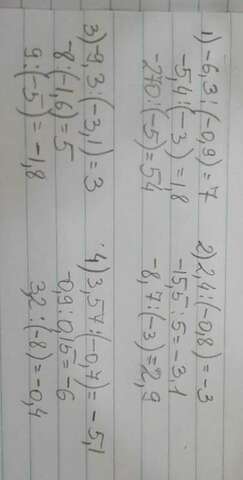 1) -6,3:(-0,9)=7
-5,4:(-3)=1,8
-270:(-5)=54
2) 2,4:(-0,8)=-3
-15,5:5=-3,1
-8,7:(-3)=2,9
3) -9,3:(-3,1)=3
-8:(-1,6)=5
9:(-5)=-1,8
4) 3,57:(-0,7)=-5,1
-0,9:0,15=-6
3,2:(-8)=-0,4